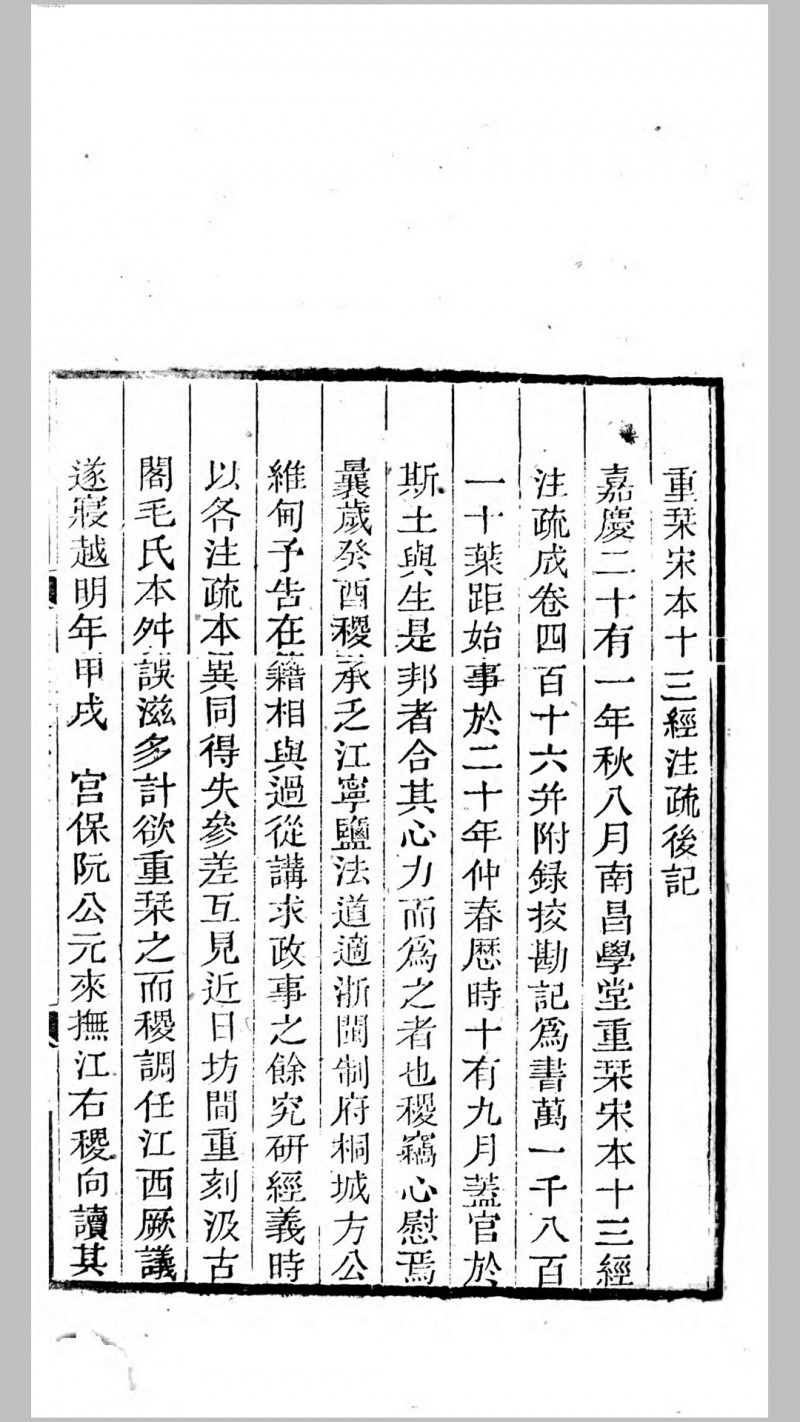 重栞宋本十三經注疏後記
嘉慶二十有一年秋八月南昌學堂重栞宋本十三經
注疏成卷四百十六并附錄挍勘記爲書萬一千八百
一十葉距始事於二十年仲春歷時十有九月蓋官於
斯土與生是邦者合其心力而爲之者也稷竊心慰焉
曩歲癸酉稷承乏江寧鹽法道適浙閩制府桐城方公
維甸予告在籍相與過從講求政事之餘究研經義時
以各注疏本異同得失參差互見近日坊間重刻汲古
閣毛氏本舛誤滋多計欲重栞之而稷調任江西厥議
遂寢越明年甲戌　宮保阮公元來撫江右稷向讀其